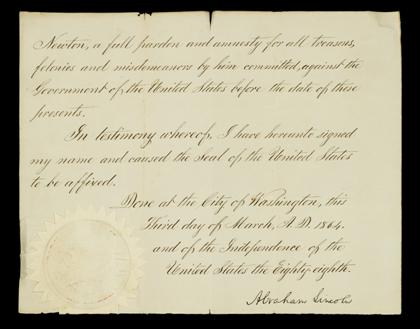 Newton, a full pardon and amnesty for all treasons,
felonies and misdemeanors by him committed, against the
Government of the United States before the date of these
presents.
In testimony whereof, I have hereunto signed
my name and caused the Seal of the United States
to be affixed.
Done at the City of Washington, this
Third day of March, A.D. 1864.
and of the Independence of the
United States the Eighty-eighth.
Abraham Lincoln